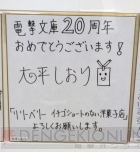 電撃文庫20周年
おめでとうございます!
大平しおり
「リリーベリー イチゴショートのない洋菓子店」
よろしくお願いします。
電撃オンライン